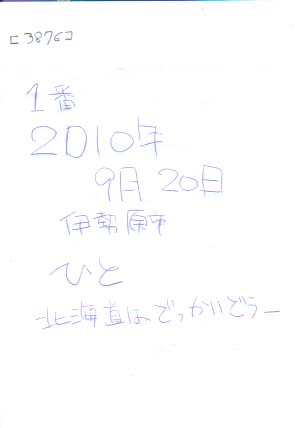 [3876]
1番
2010年
9月20日
伊勢原市
ひと
北海道はでっかいどうー